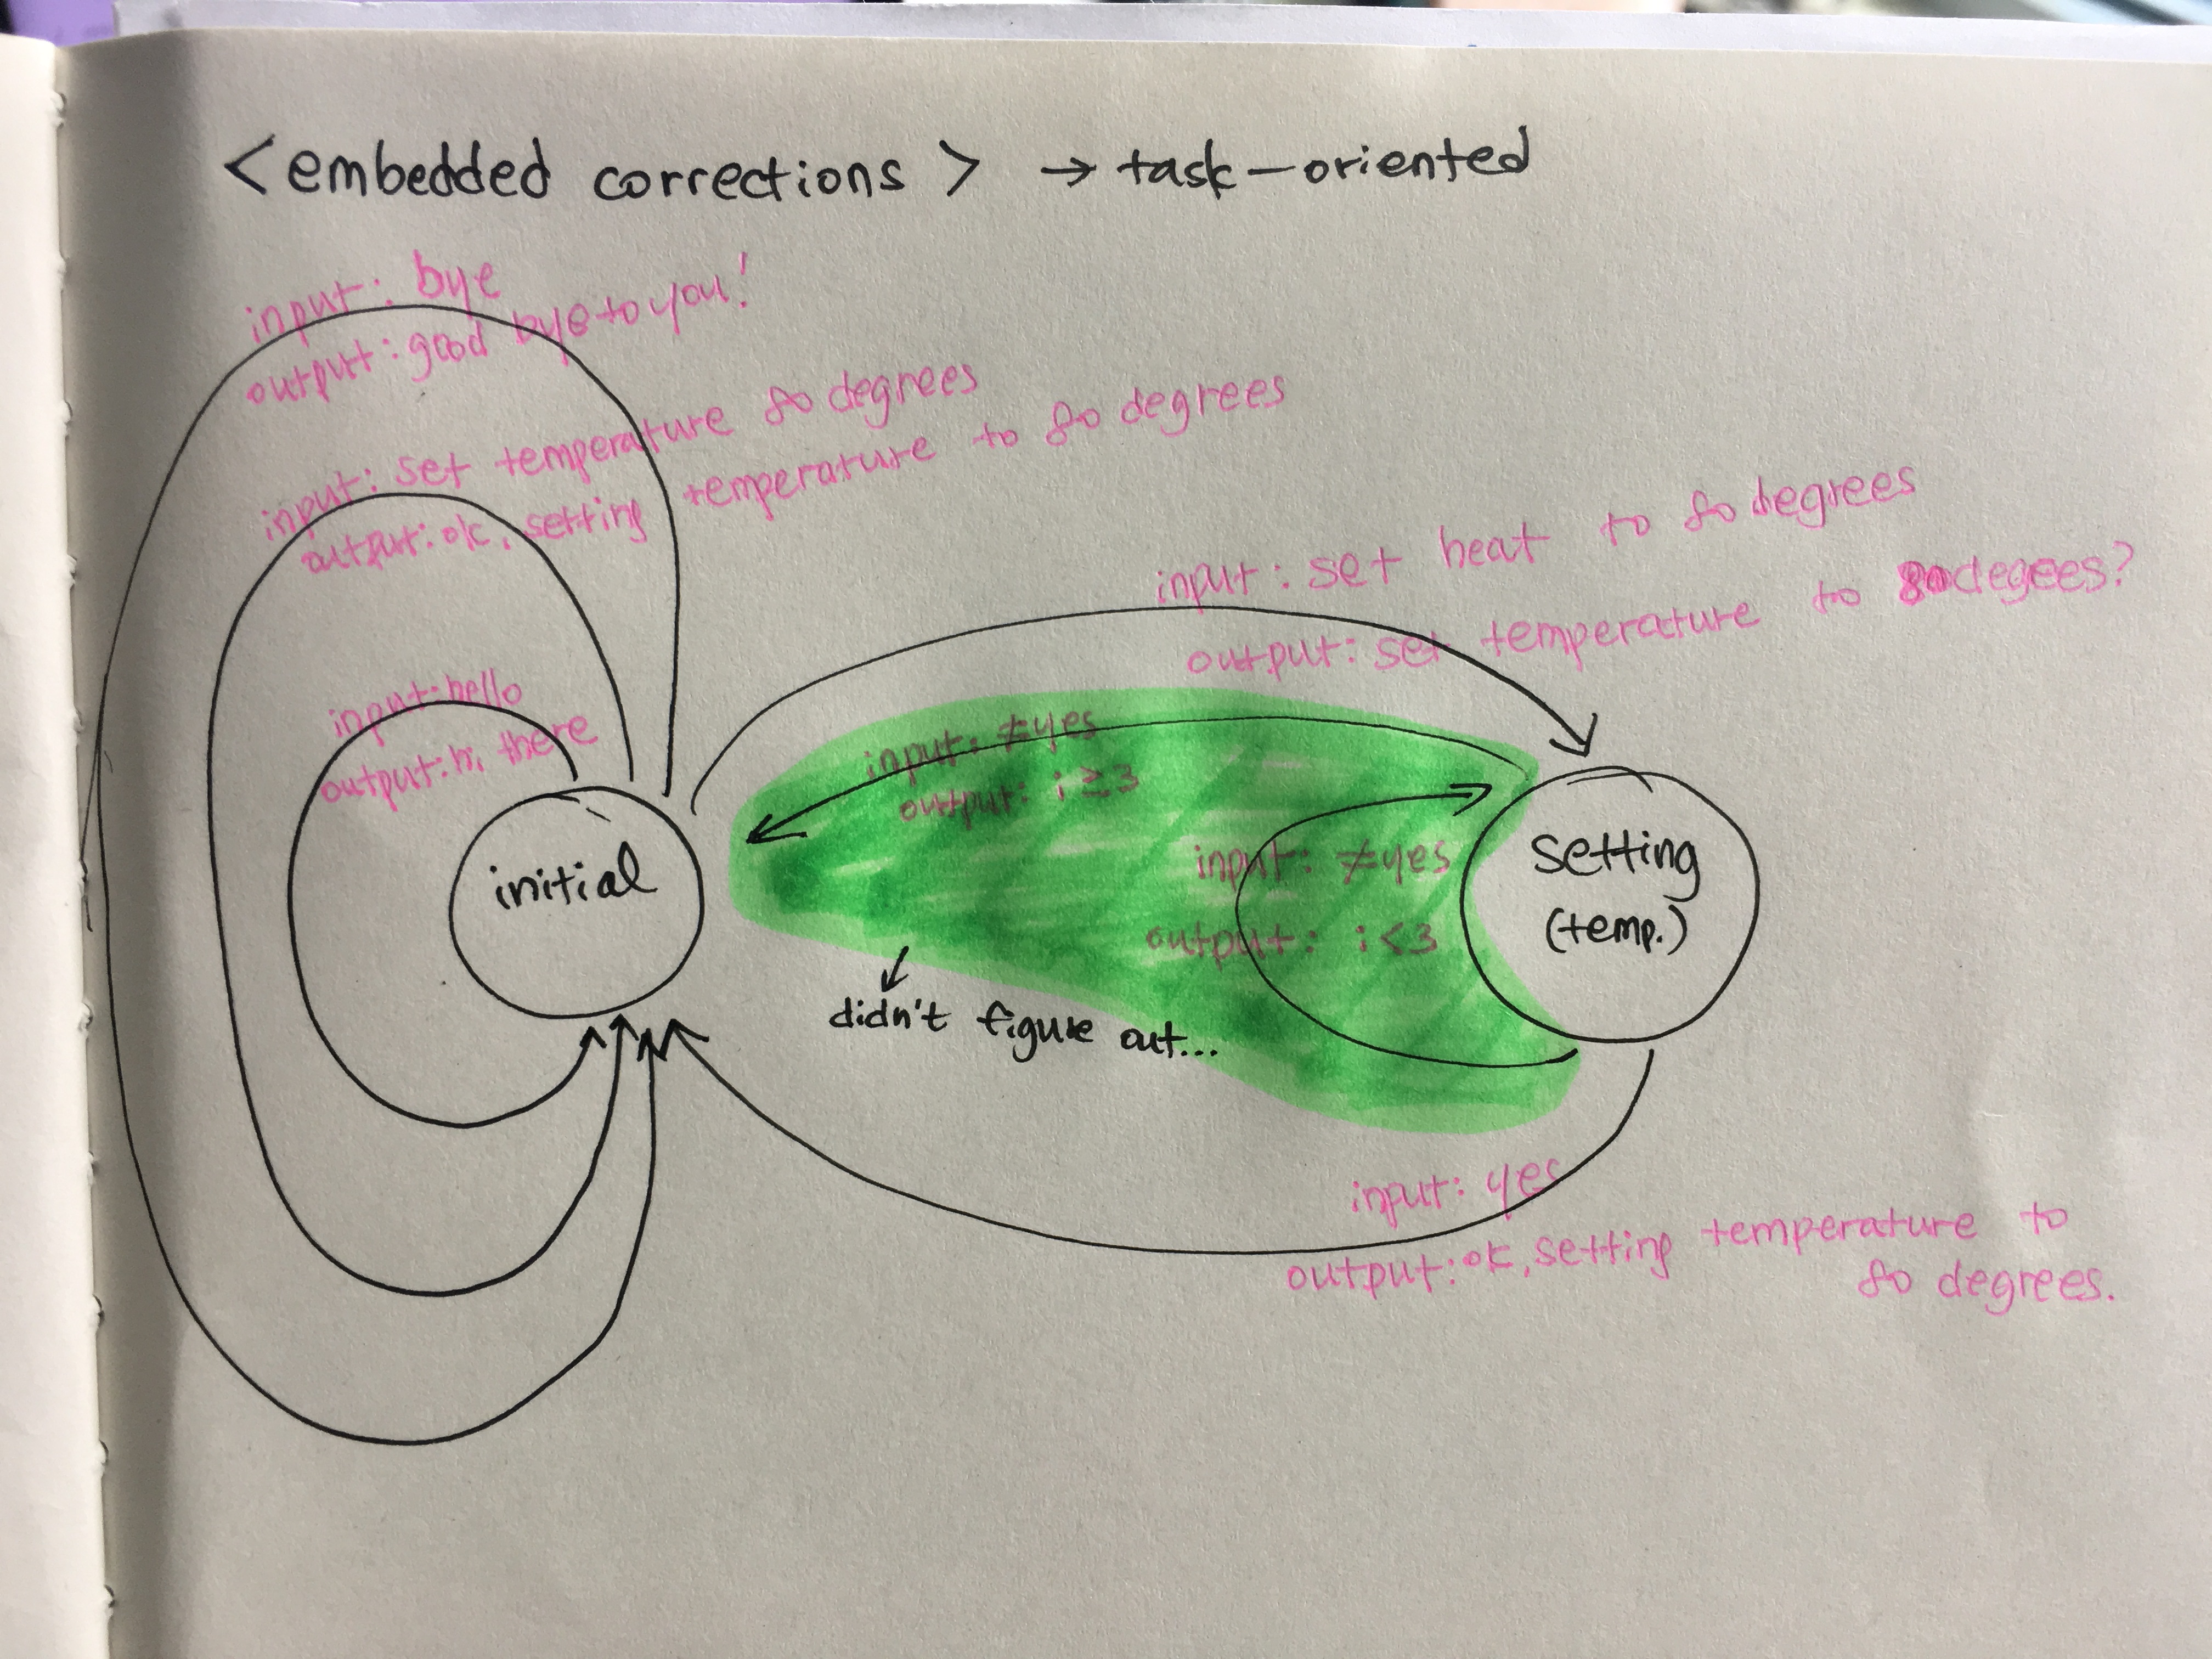 <embedded corrections> → task-oriented
input: bye
output: good bye to you!
input: set temperature 80 degrees
output: ok, setting temperature to 80 degrees
input: set heat to 80 degrees
output: set temperature to 80 degees?
input: hello
output: hi, there
input: ≠yes
output: i ≥ 3
initial
input: ≠yes
output: i < 3
setting
(temp.)
↓
didn't figure out...
input: yes
output: ok, setting temperature to
80 degrees.